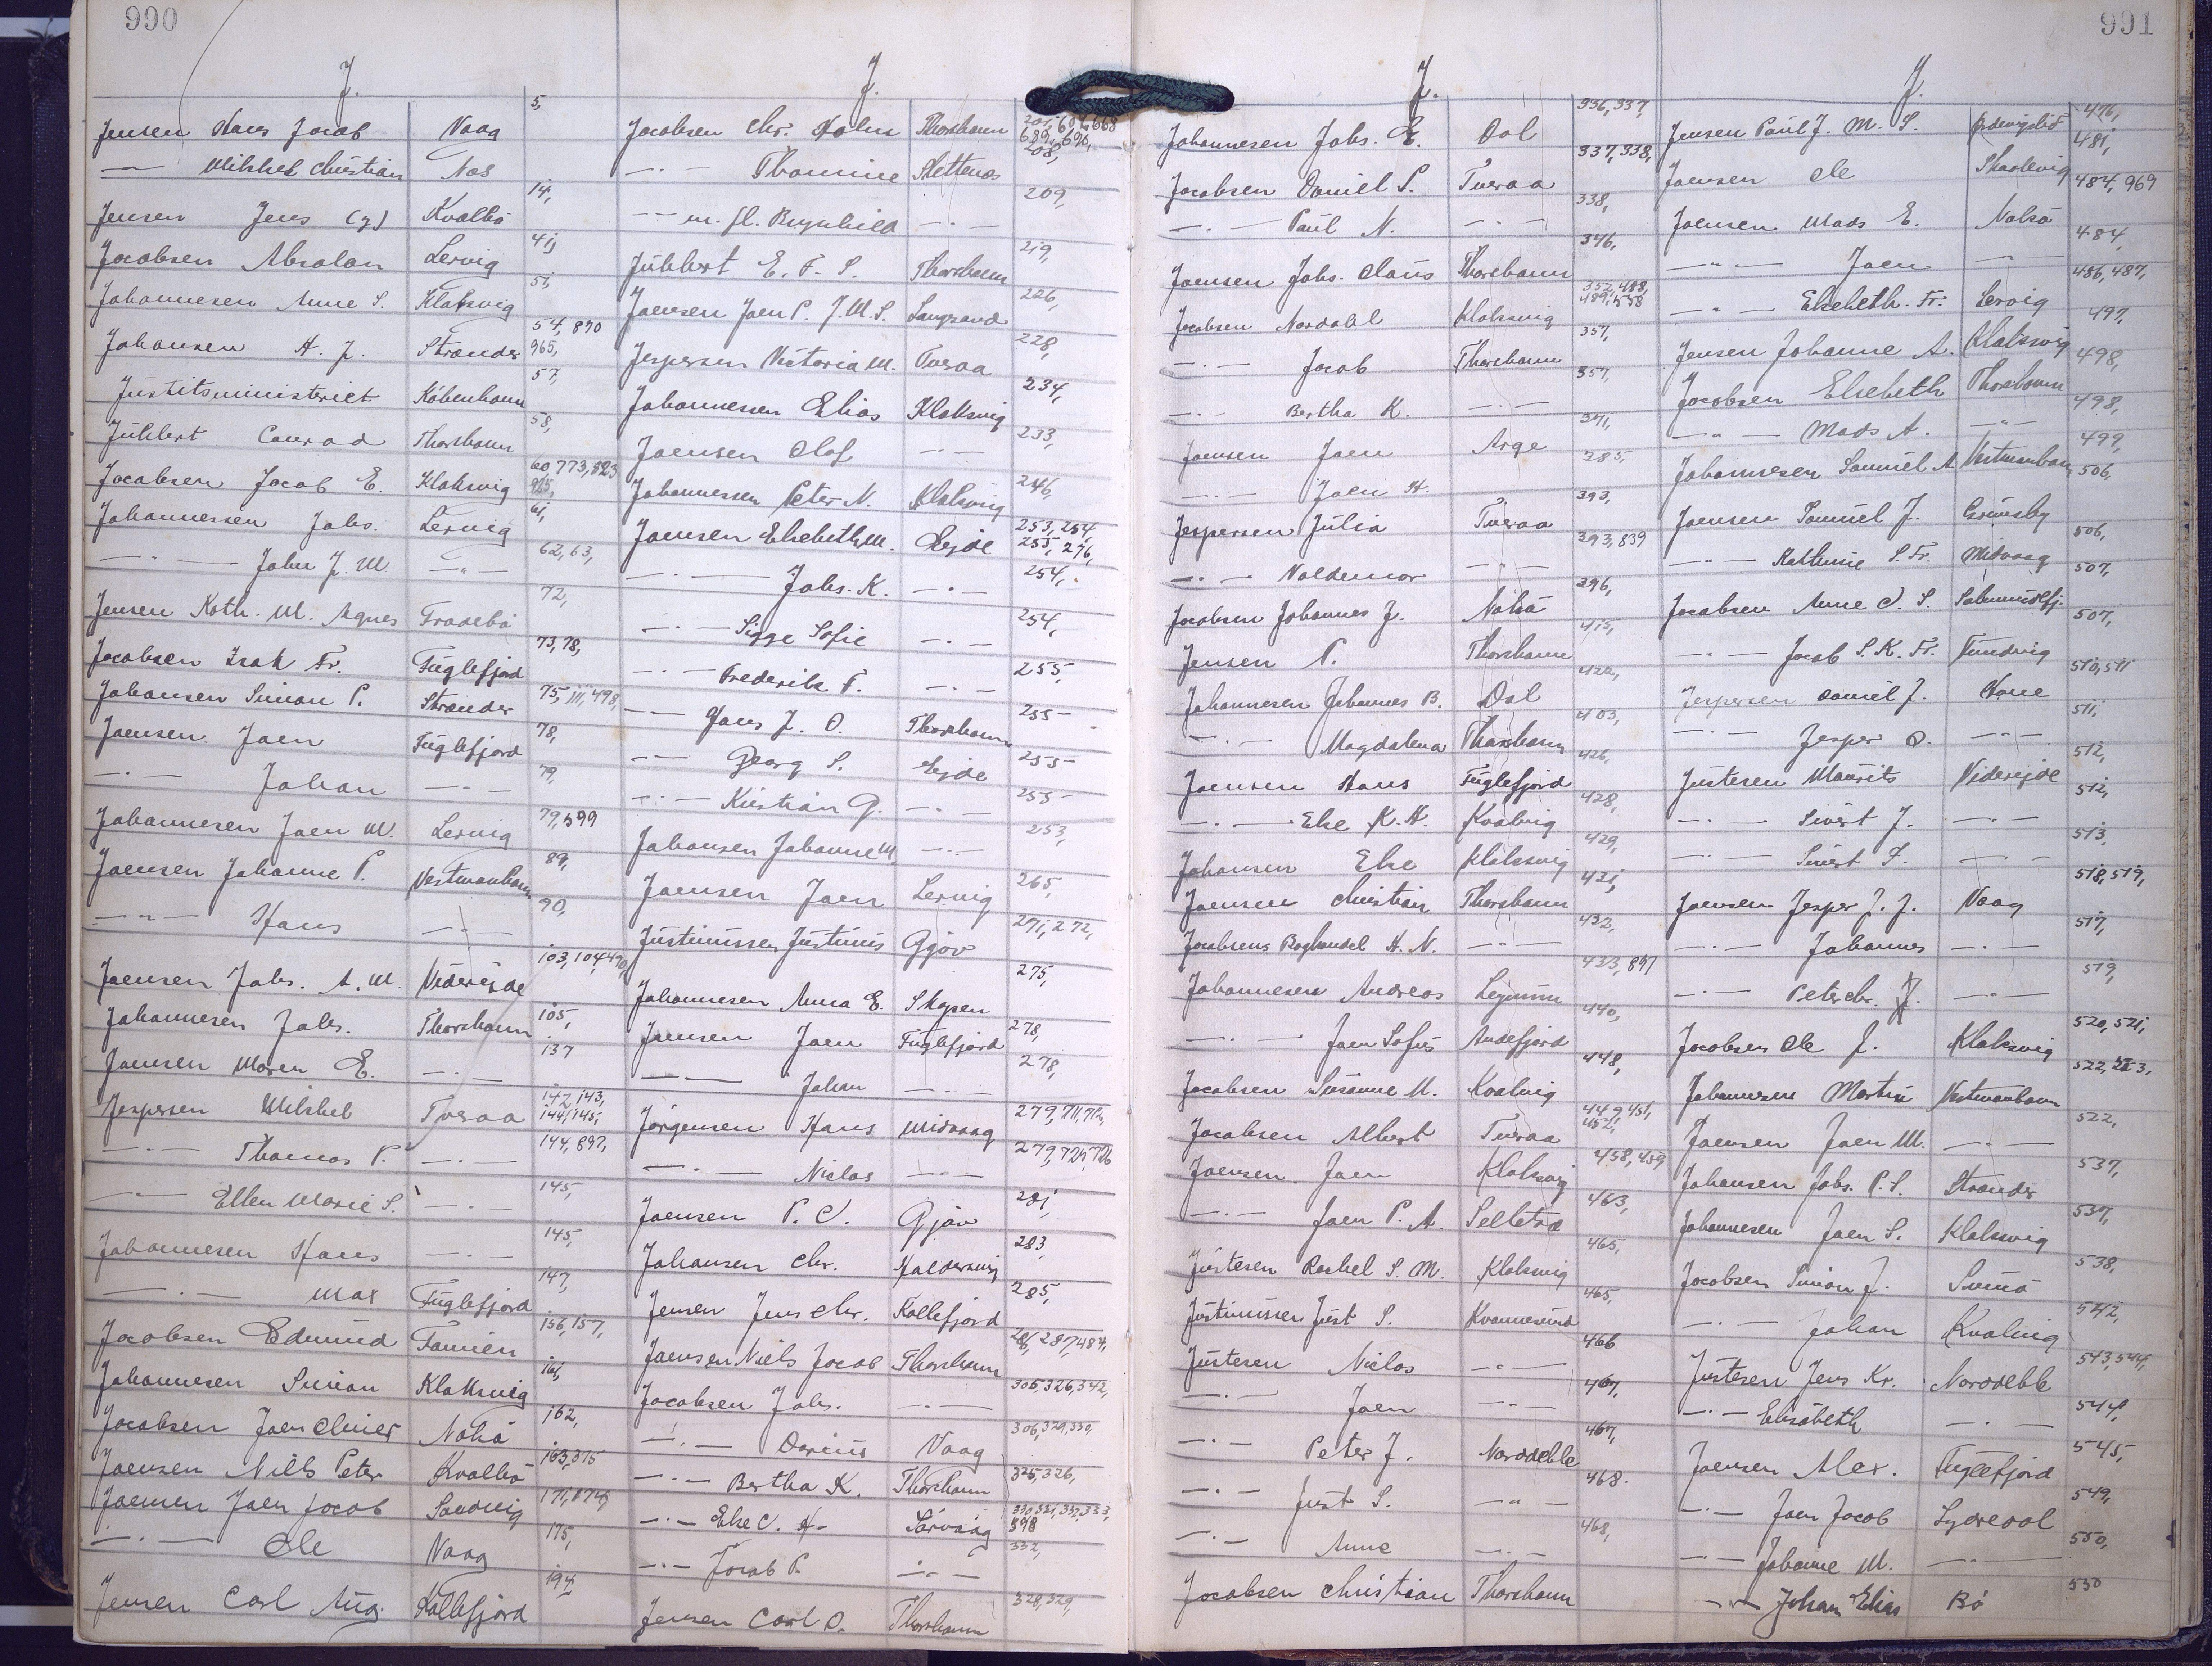 990
J.
Jensen Hans Jacob Vaag 5,
— Mikkel Christian Næs
Jensen Jens (y) Kvalbö 14,
Jacobsen Absalon Lervig 41,
Johannesen Anne S. Klaksvig 51,
Johansen H. J. Strænder 54, 870 965,
Justitsministeriet København 57,
Juhlert Conrad Thorshavn 58,
Jacobsen Jacob E. Klaksvig 60, 773, 823
Johannessen Johs. Lervig 61,
— " — John J. M. — " — 62, 63,
Jensen Kath. M. Agnes Fradebö 72,
Jacobsen Isak Fr. Fuglefjord 73, 78,
Johansen Simon P. Strænder 75, 111, 498,
Joensen Joen Fuglefjord 78,
— " — Johan — " — 79,
Johannesen Joen M. Lervig 79, 599
Joensen Johanne P. Vestmanhavn 89,
— " — Hans — " — 90,
Joensen Johs. A. M. Videreide 103, 104, 490,
Johannesen Johs. Thorshavn 105,
Joensen Maren E. — " — 137
Jespersen Mikkel Tveraa 142, 143, 144, 145,
— " — Thomas P. — " — 144, 897,
— " — Ellen Marie S. — " — 145,
Johannesen Hans — " — 145,
— " — Max Fuglefjord 147,
Jacobsen Edmund Famien 156, 157,
Johannesen Simon Klaksvig 161,
Jacobsen Joen Oliver Nolsö 162,
Joensen Niels Peter Kvalbö 163, 315
Joensen Joen Jacob Sandvig 171, 174,
— " — Ole Vaag 175,
Jensen Carl Aug. Kollefjord 194
J.
Jacobsen Chr. Holm Thorshavn 689, 690,
— " — Thomine Slettenæs 208,
— " — m. fl. Brynhild — " — 209,
Juhlert E. F. S. Thorshavn 219,
Joensen Joen P. J. M. S. Sangsand 226,
Jespersen Victoria M. Tveraa 228,
Johannessen Elias Klaksvig 234,
Joensen Olof — " — 233,
Johannessen Peter N. Klaksvig 246,
Joensen Elsebeth M. Ejde 253, 254, 255, 276,
— " — Johs. K. — " — 254,
— " — Sigge Sofie — " — 254,
— " — Frederik F. — " — 255,
— " — Hans J. O. Thorshavn 255
— " — Georg S. Ejde 255
— " — Kristian G. — " — 255
Johansen Johanne M. — " — 253,
Joensen Joen Lervig 265,
Justinussen Justinus Gjov 271, 272,
Johannesen Anna E. Skopen 275,
Joensen Joen Fuglefjord 278,
— " — Johan — " — 278,
Jörgensen Hans Midvaag 279, 711, 712,
— " — Niclas — " — 279, 725, 726
Joensen P. C. Gjov 281,
Johansen Chr. Haldersvig 283,
Jensen Jens Chr. Kollefjord 285,
Joensen Niels Jacob Thorshavn 286, 287, 484,
Jacobsen Johs. — " — 305, 326, 342,
— " — Darius Vaag 306, 329, 330,
— " — Bertha K. Thorshavn 325, 326,
— " — Else C. H. Sörvaag 330, 331, 332, 333, 398
— " — Jacob P. — " — 332,
Jensen Carl O. Thorshavn 328, 329,
991
J.
Johannesen Johs. E. Dal 336, 337,
Jacobsen Daniel P. Tveraa 337, 338,
— " — Paul N. — " — 338,
Joensen Johs. Claus Thorshavn 346,
Jacobsen Nordahl Klaksvig 352, 488, 489, 558
— " — Jacob Thorshavn 357,
— " — Bertha K. — " — 357,
Joensen Joen Arge 371,
— " — Joen H. 385,
Jespersen Julia Tveraa 393,
— " — Valdemar — " — 393, 839
Jacobsen Johannes J. Nolsö 396,
Jensen P. Thorshavn 415,
Johannesen Johannes B. Dal 422,
— " — Magdalena Thorshavn 403,
Joensen Hans Fuglefjord 426,
— " — Else K. H. Kvalvig 428,
Johansen Else Klaksvig 429,
Joensen Christian Thorshavn 431,
Jacobsens Boghandel H. N. — " — 432,
Johannesen Andreas Leynum 433, 897
— " — Joen Sofus Andefjord 440,
Jacobsen Susanne M. Kvalvig 448,
Jacobsen Albert Tveraa 449, 451, 452,
Joensen Joen Klaksvig 458, 459
— " — Joen P. A. Selletræ 463,
Justesen Rachel S. M. Klaksvig 465,
Justinussen Just S. Kvannesund 465,
Justesen Niclas — " — 466
— " — Joen — " — 467,
— " — Peter J. Norddeble 467,
— " — Just S. — " — 468.
— " — Anne — " — 468,
Jacobsen Christian Thorshavn
J.
Jensen Paul J. M. S. 476,
Joensen Ole Skaalevig 481,
Joensen Mads E. Nolsö 484, 969
— " — Joen — " — 484,
— " — Elsebeth. Fr. Lervig 486, 487,
Jensen Johanne A. Klaksvig 497,
Jacobsen Elsebeth Thorshavn 498,
— " — Mads A. — " — 498,
Johannesen Samuel A. Vestmanhavn 499,
Joensen Samuel J. Grimsby 506,
— " — Kathrine S. Fr. Midvaag 506,
Jacobsen Anne C. S. Salmundefj. 507,
— " — Jacob S. K. Fr. Funding 507,
Jespersen Daniel J. Hove 510, 511
— " — Jesper O. — " — 511,
Justesen Mourits Viderejde 512,
— " — Sivert J. — " — 512,
— " — Sivert F. — " — 513,
Joensen Jesper J. J. Vaag 518, 519,
— " — Johannes — " — 517,
— " — Peter Chr. J. — " — 519,
Jacobsen Ole J. Klaksvig 520, 521,
Johannesen Martin Vestmanhavn 522, 523,
Joensen Joen M. — " — 522,
Johansen Johs. P. S. Strænder 537,
Johannesen Joen S. Klaksvig 537,
Jacobsen Simon J. Sumö 538,
— " — Johan Kvalvig 542,
Justesen Jens Kr. Norddeble 543, 544,
— " — Elisabeth — " — 544,
Joensen Alex. Fuglefjord 545,
— " — Joen Jacob Sydredal 549,
— " — Johanne M. — " — 550,
— " — Johan Elias Bö 550